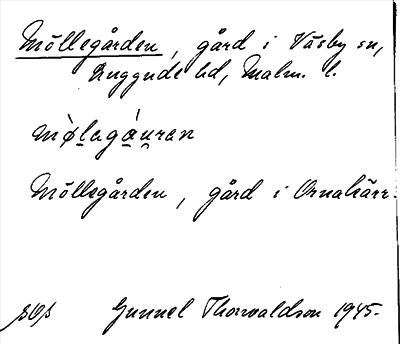 Möllegården, gård i Väsby sn,
Luggude hd, Malm. l.
Möllegården, gård i Ornakärr.
Gunnel Thorvaldson 1945.